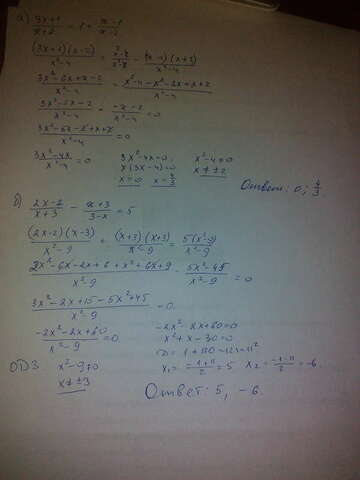 а) (3x+1)/(x+2) = 1 + (x-1)/(x-2)
((3x+1)(x-2))/(x²-4) = (x²-4)/(x²-4) - ((x-1)(x+2))/(x²-4)
(3x²-6x+x-2)/(x²-4) = (x²-4-x²-2x+x+2)/(x²-4)
(3x²-5x-2)/(x²-4) - (-x-2)/(x²-4) = 0
(3x²-5x-2+x+2)/(x²-4) = 0
(3x²-4x)/(x²-4) = 0 3x²-4x=0; x²-4≠0
x(3x-4)=0 x≠±2
x=0 x=4/3
Ответ: 0; 4/3.
б) (2x-2)/(x+3) - (x+3)/(3-x) = 5
((2x-2)(x-3))/(x²-9) + ((x+3)(x+3))/(x²-9) = (5(x²-9))/(x²-9)
(2x²-6x-2x+6+x²+6x+9)/(x²-9) - (5x²-45)/(x²-9) = 0
(3x²-2x+15-5x²+45)/(x²-9) = 0.
(-2x²-2x+60)/(x²-9) = 0. -2x²-2x+60=0
x²+x-30=0
D=1+120=121=11²
ОДЗ x²-9≠0 x₁=(-1+11)/2=5 x₂=(-1-11)/2=-6.
x≠±3
Ответ: 5, -6.